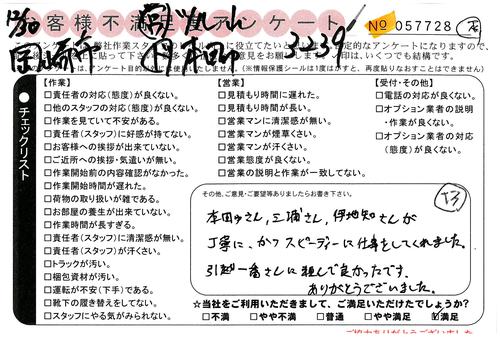 お客様不満足度アンケート
No 057728
12/30
岡崎市
3239
チェックリスト
【作業】
□責任者の対応(態度)が良くない。
□他のスタッフの対応(態度)が良くない。
□作業を見ていて不安がある。
□責任者(スタッフ)に好感が持てない。
□お客様への挨拶が出来ていない。
□ご近所への挨拶・気遣いが無い。
□作業開始前の内容確認がなかった。
□作業開始時間が遅れた。
□荷物の取り扱いが雑である。
□お部屋の養生が出来ていない。
□作業時間が長すぎる。
□責任者(スタッフ)に清潔感が無い。
□責任者(スタッフ)が汗くさい。
□トラックが汚い。
□梱包資材が汚い。
□運転が不安(下手)である。
□靴下の履き替えをしてない。
□スタッフにやる気がみられない。
【営業】
□見積もり時間に遅れた。
□見積もり時間が長い。
□営業マンに清潔感が無い。
□営業マンが煙草くさい。
□営業マンが汗くさい。
□営業態度が良くない。
□営業の説明と作業が一致してない。
【受付・その他】
□電話の対応が良くない。
□オプション業者の説明
・作業が良くない。
□オプション業者の対応
(態度)が良くない。
その他、ご意見・ご要望等ありましたらお書き下さい。
本田さん,三浦さん,伊地知さんが
丁寧に、かつスピーディーに仕事をしてくれました。
引越一番さんに頼んで良かったです。
ありがとうございました。
☆当社をご利用いただきまして、ご満足いただけたでしょうか?
□不満 □やや不満 □普通 □やや満足 ☑満足
ご協力ありがとうございました